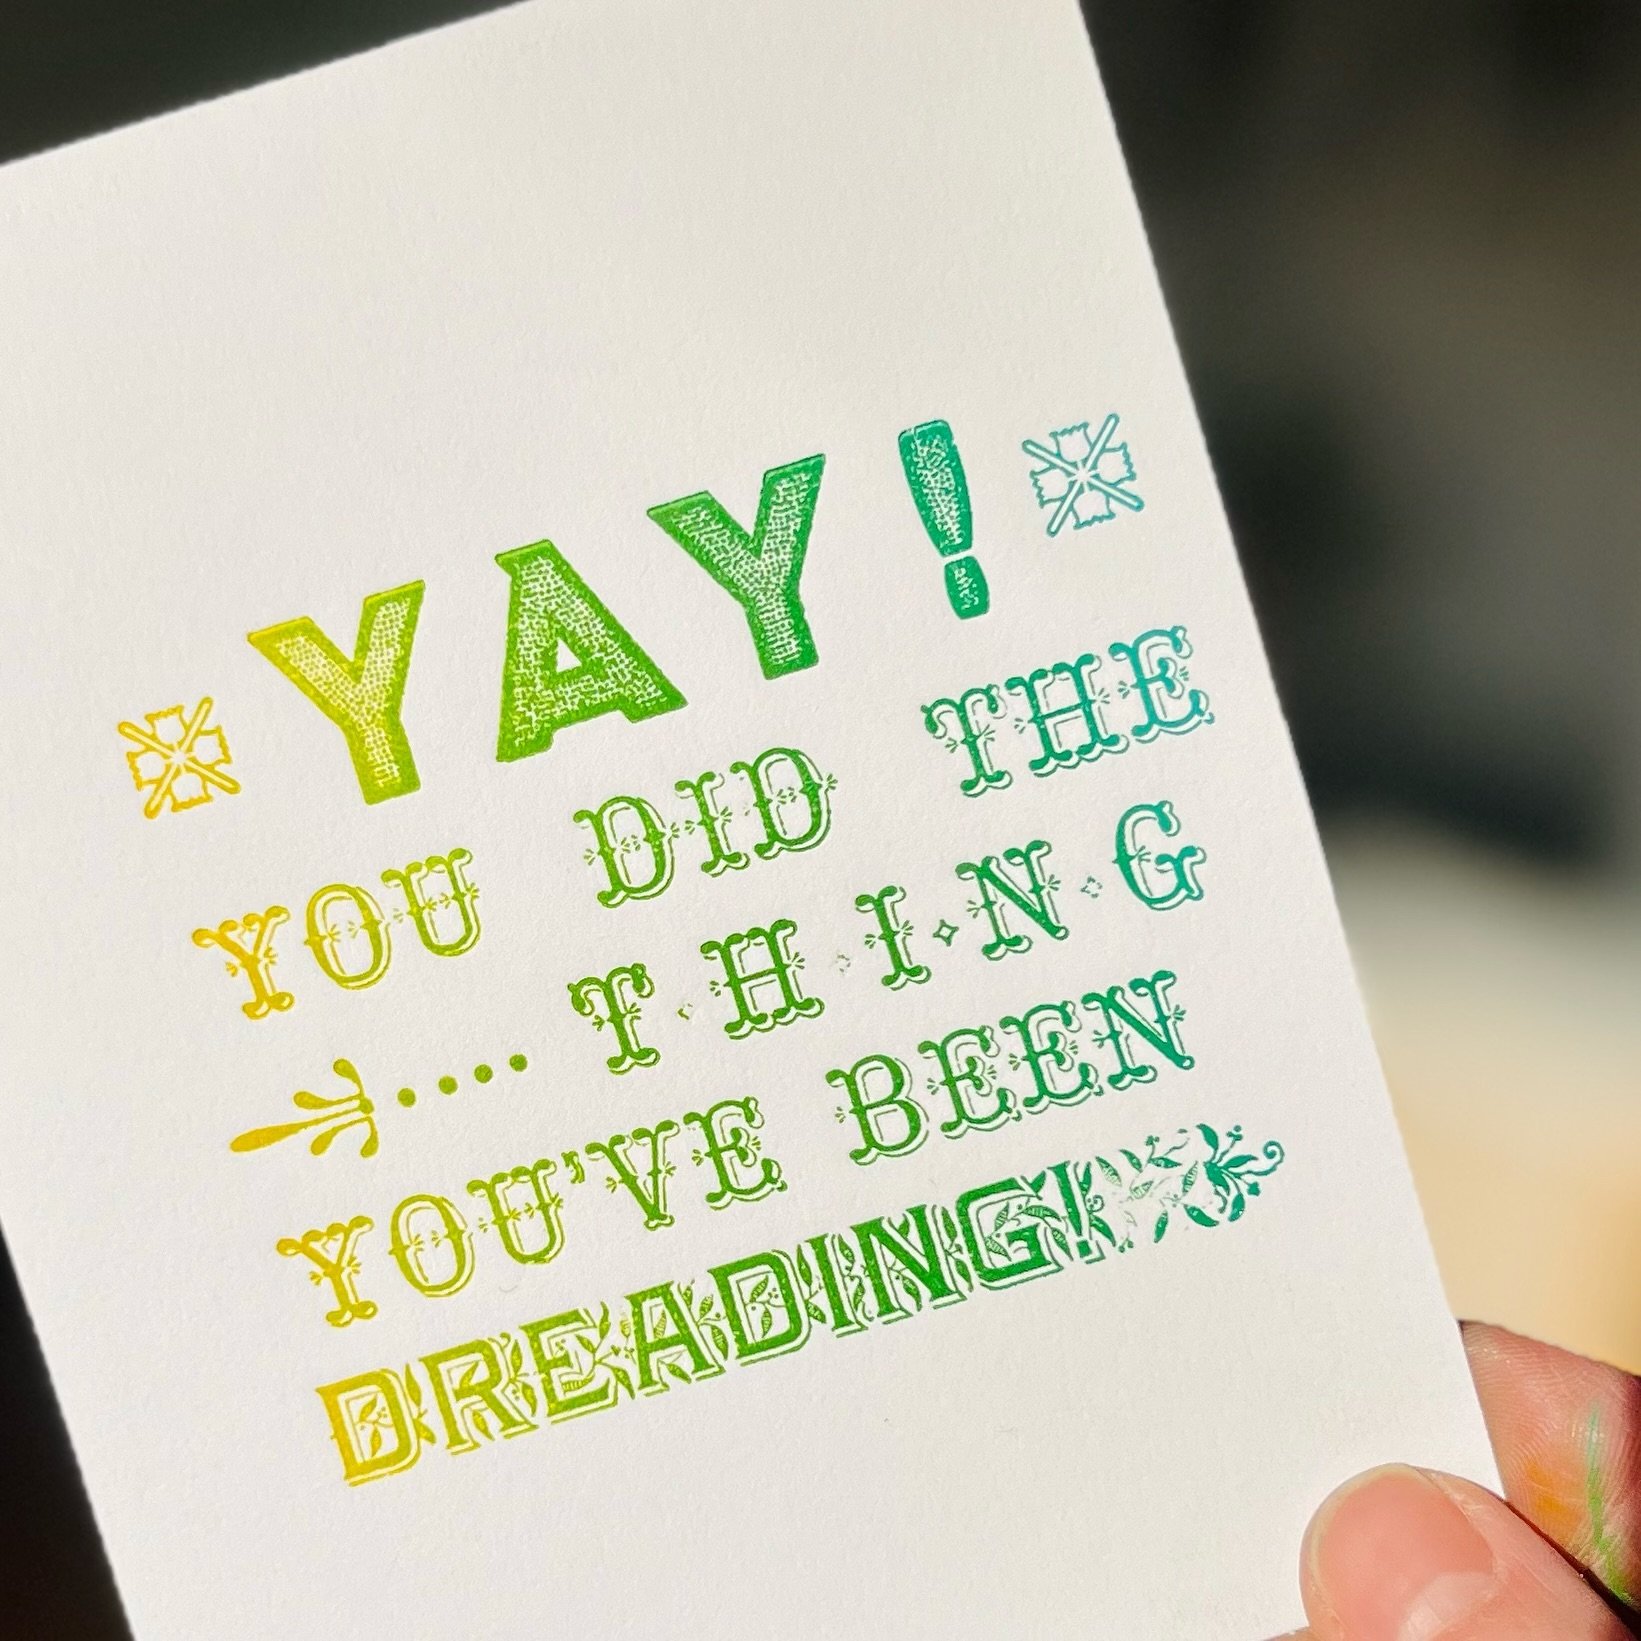 YAY!
YOU DID THE
....T·H·I·N·G
YOU'VE BEEN
DREADING!